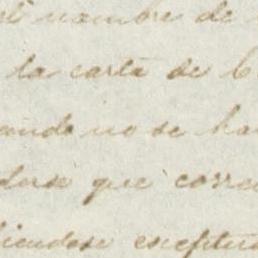 el nombre de
la carta de
ando no se ha
derse que corre
biendose esceptu